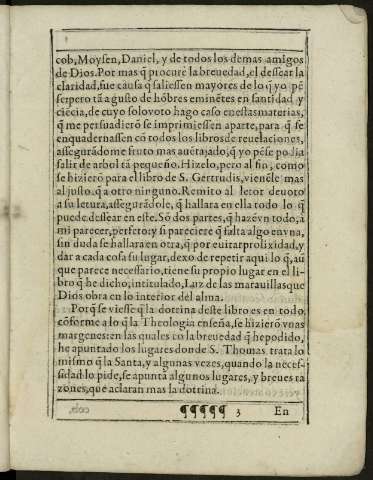 cob, Moysen, Daniel, y de todos los demas amigos
de Dios. Por mas q̃ procurè la breuedad, el dessear la
claridad, fue causa q̃ saliessen mayores de lo q̃ yo pẽ
se, pero tã a gusto de hõbres eminẽtes en santidad y
ciẽcia, de cuyo solo voto hago caso en estas materias,
q̃ me persuadierõ se imprimiessen aparte, para q̃ se
enquadernassen cõ todos los libros de reuelaciones,
assegurãdome fruto mas auẽtajado, q̃ yo pẽse podia
salir de arbol tã pequeño. Hizelo, pero al fin, como
se hizierõ para el libro de S. Gertrudis, vienẽle mas
al justo q̃ a otro ninguno. Remito al letor deuoto
a su letura, assegurãdole, q̃ hallara en ella todo lo q̃
puede dessear en este. Sõ dos partes, q̃ hazẽ vn todo, à
mi parecer, perfeto: y si pareciere q̃ falta algo en vna,
sin duda se hallara en otra, q̃ por euitar prolixidad, y
dar a cada cosa su lugar, dexo de repetir aqui lo q̃, aũ
que parece necessario, tiene su propio lugar en el li-
bro q̃ he dicho, intitulado, Luz de las marauillas que
Dios obra en lo interior del alma.
Porq̃ se viesse q̃ la dotrina deste libro es en todo
cõforme a lo q̃ la Theologia enseña, se hizierõ vnas
margenes: en las quales cõ la breuedad q̃ he podido,
he apuntado los lugares donde S. Thomas trata lo
mismo q̃ la Santa, y algunas vezes, quando la neces-
sidad lo pide, se apuntã algunos lugares, y breues ra
zones, que aclaran mas la dotrina.
¶¶¶¶¶ 3 En